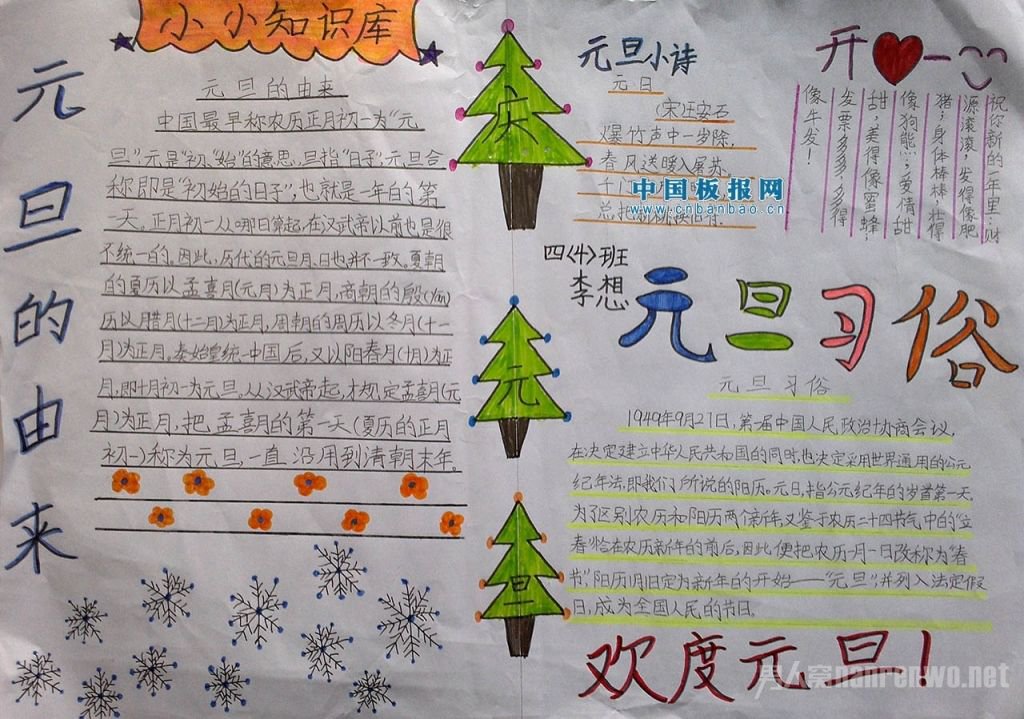 小小知识库
元旦的由来
元旦的由来
中国最早称农历正月初一为“元
旦”元是“初,“始”的意思,旦指“日子”,元旦合
称即是“初始的日子”,也就是一年的第
一天。正月初一从哪日算起,在汉武帝以前也是很
不统一的。因此,历代的元旦月、日也并不一致。夏朝
的夏历以孟喜月(元月)为正月,商朝的殷(yīn)
历以腊月(十二月)为正月,周朝的周历以冬月(十一
月)为正月。秦始皇统一中国后,又以阳春月(十月)为正
月,即十月初一为元旦。从汉武帝起,才规定孟喜月(元
月)为正月,把孟喜月的第一天(夏历的正月
初一)称为元旦,一直沿用到清朝末年。
庆
元
旦
元旦小诗
元日
(宋)王安石
爆竹声中一岁除,
春风送暖入屠苏.
千门
总把
中国板报网
www.cnbanbao.cn
开一
祝你新的一年里:财
源滚滚,发得像肥
猪;身体棒棒,壮得
像狗熊;爱情甜
甜,美得像蜜蜂;
发票多多,多得
像牛发!
四〈4〉班
李想
元旦习俗
元旦习俗
1949年9月21日,第一届中国人民政治协商会议,
在决定建立中华人民共和国的同时,也决定采用世界通用的公元
纪年法,即我们所说的阳历。元旦,指公元纪年的岁首第一天。
为了区别农历和阳历两个新年,又鉴于农历二十四节气中的“立
春”恰在农历新年的前后,因此便把农历一月一日改称为“春
节”,阳历1月1日定为新年的开始——“元旦”,并列入法定假
日,成为全国人民的节日.
欢度元旦!
男人窝nanrenwo.net